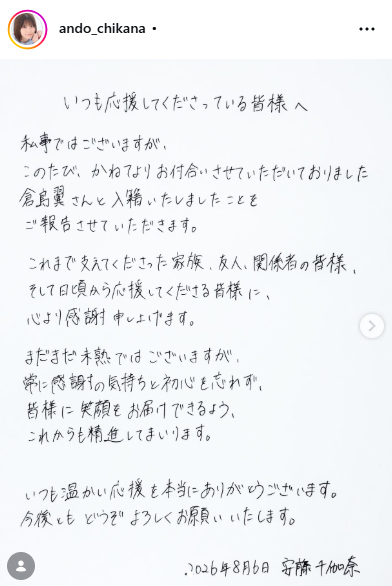 ando_chikana
いつも応援してくださっている皆様へ
私事ではございますが、
このたび、かねてよりお付合いさせていただいておりました
倉島翼さんと入籍いたしましたことを
ご報告させていただきます。
これまで支えてくださった家族、友人、関係者の皆様、
そして日頃から応援してくださる皆様に、
心より感謝申し上げます。
まだまだ未熟ではございますが、
常に感謝の気持ちと初心を忘れず、
皆様に笑顔をお届けできるよう、
これからも精進してまいります。
いつも温かい応援を本当にありがとうございます。
今後ともどうぞよろしくお願いいたします。
2026年8月6日 安藤千伽奈